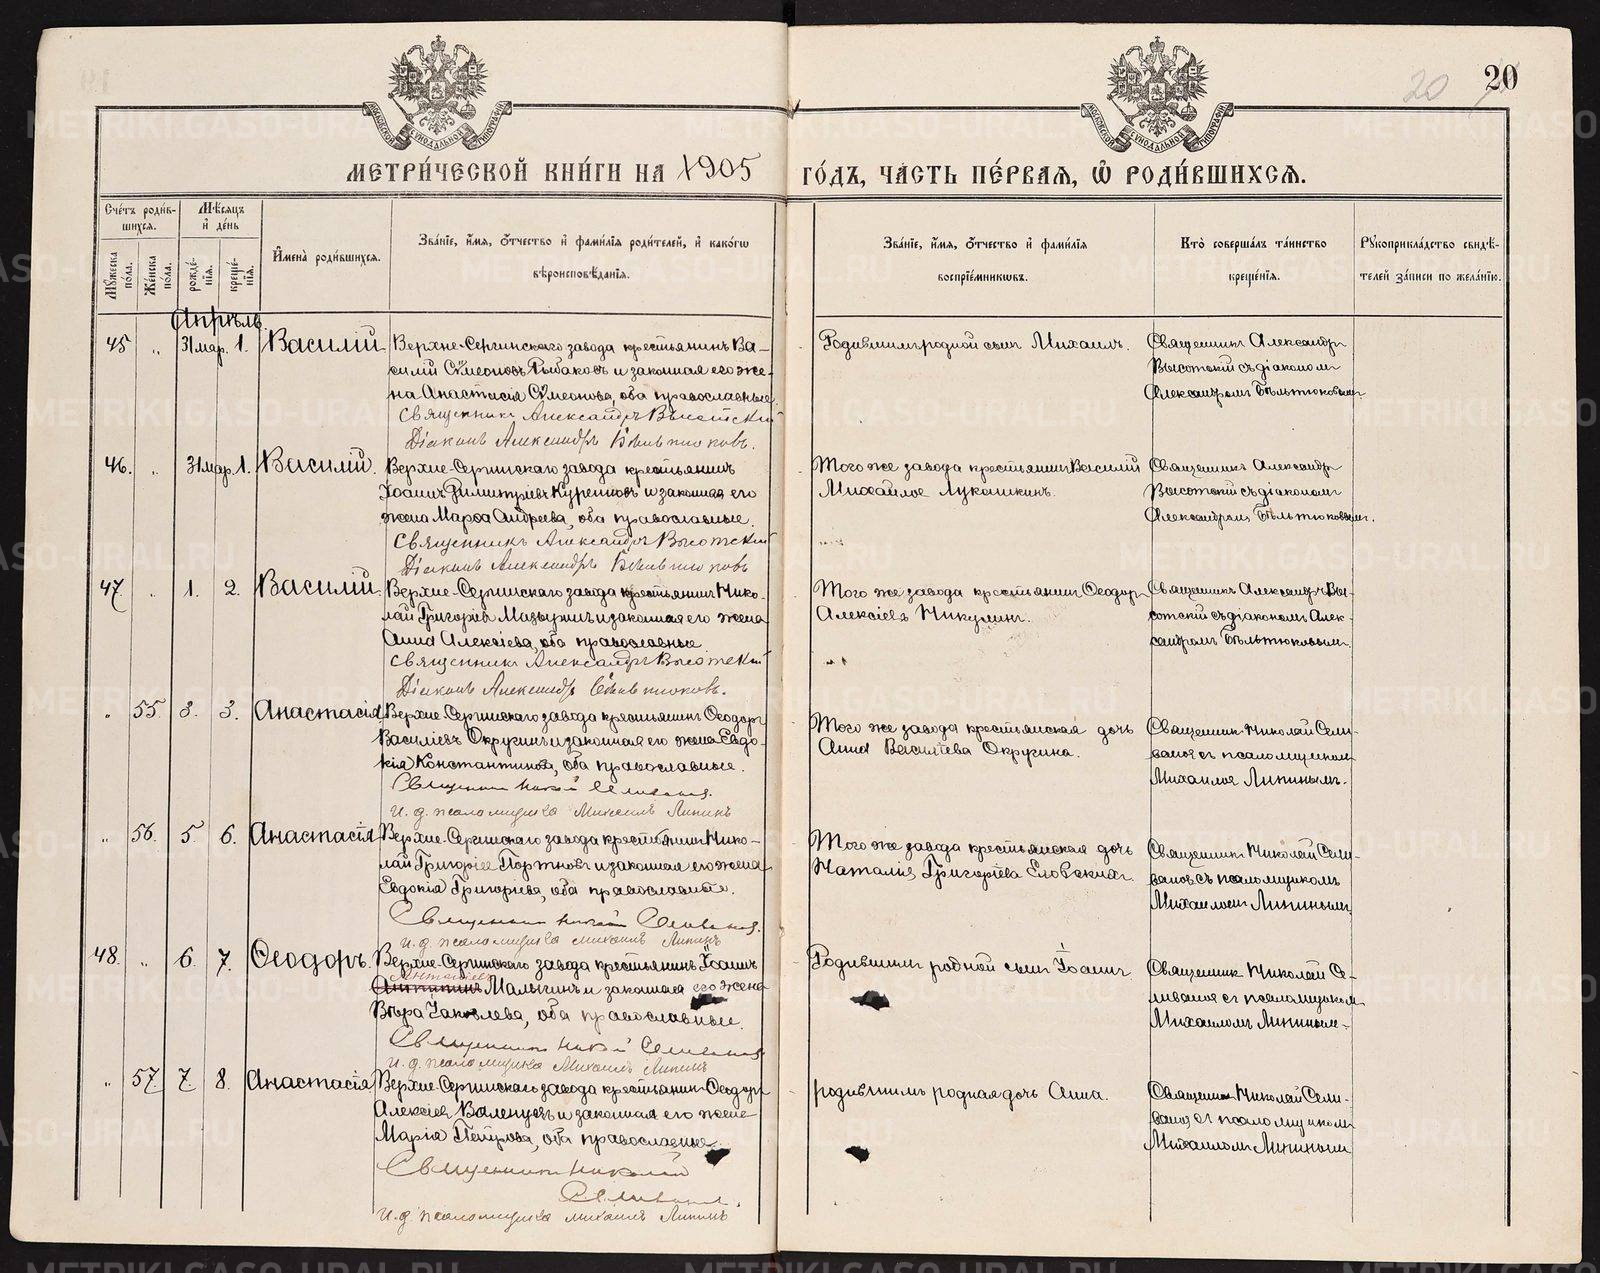 20
20
МЕТРИ́ЧЕСКОЙ КНИ́ГИ НА 1905 ГО́ДЪ, ЧА́СТЬ ПЕ́РВАЯ, Ѽ РОДИ́ВШИХСЯ.
Сче́тъ роди́в-
шихся.
Му́жеска по́ла.
Же́нска по́ла.
Мѣ́сяцъ
и де́нь
рожде́-
нія.
креще́-
нія.
Имена̀ роди́вшихся.
Зва́ніе, и́мя, о́тчество и фами́лія роди́телей, и како́гѡ
вѣроисповѣ́данія.
Зва́ніе, и́мя, о́тчество и фами́лія
воспріе́мникѡвъ.
Кто̀ соверша́лъ та́инство
креще́нія.
Рукоприкла́дство свидѣ́-
телей за́писи по жела́нію.
Апрѣль.
45 „ 31 мар. 1. Василій
Верхне-Сергинскаго завода крестьянинъ Ва-
силій Сѵмеоновъ Рыбаковъ и законная его же-
на Анастасія Сѵмеонова, оба православные.
Священникъ Александръ Высотскій
Діаконъ Александръ Бѣльтюковъ.
Родившимъ родной сынъ Михаилъ.
Священникъ Александръ
Высотскій съ діакономъ
Александромъ Бѣльтюковымъ.
46. „ 31 мар. 1. Василій.
Верхне-Сергинскаго завода крестьянинъ
Іоаннъ Димитріевъ Куренковъ и законная его
жена Марѳа Андреева, оба православные.
Священникъ Александръ Высотскій
Діаконъ Александръ Бѣльтюковъ
Того же завода крестьянинъ Василій
Михайловъ Лукошкинъ.
Священникъ Александръ
Высотскій съ діакономъ
Александромъ Бѣльтюковымъ.
47. „ 1. 2. Василій.
Верхне-Сергинскаго завода крестьянинъ Нико-
лай Григорьевъ Мазунинъ и законная его жена
Анна Алексіева, оба православные.
Священникъ Александръ Высотскій
Діаконъ Александръ Бѣльтюковъ.
Того же завода крестьянинъ Ѳеодоръ
Алексіевъ Никулинъ.
Священникъ Александръ Вы-
сотскій съ діакономъ Алек-
сандромъ Бѣльтюковымъ.
„ 55. 3. 3. Анастасія
Верхне-Сергинскаго завода крестьянинъ Ѳеодоръ
Василіевъ Округинъ и законная его жена Евдо-
кія Константинова, оба православные.
Священникъ Николай Селивановъ.
И. д. псаломщика Михаилъ Липинъ
Того же завода крестьянская дочь
Анна Василіева Округина.
Священникъ Николай Сели-
вановъ съ псаломщикомъ
Михаиломъ Липинымъ.
„ 56. 5. 6. Анастасія
Верхне-Сергинскаго завода крестьянинъ Нико-
лай Григоріевъ Портновъ и законная его жена
Евдокія Григоріева, оба православные.
Священникъ Николай Селивановъ.
И. д. псаломщика Михаилъ Липинъ
Того же завода крестьянская дочь
Наталія Григоріева Еловскихъ.
Священникъ Николай Сели-
вановъ съ псаломщикомъ
Михаиломъ Липинымъ.
48. „ 6. 7. Ѳеодоръ.
Верхне-Сергинскаго завода крестьянинъ Іоаннъ
Малыгинъ и законная его жена
Вѣра Іаковлева, оба православные.
Священникъ Николай Селивановъ
И. д. псаломщика Михаилъ Липинъ
Родившимъ родной сынъ Іоаннъ
Священникъ Николай Се-
ливановъ съ псаломщикомъ
Михаиломъ Липинымъ.
„ 57. 7. 8. Анастасія
Верхне-Сергинскаго завода крестьянинъ Ѳеодоръ
Алексіевъ Валенцевъ и законная его жена
Марія Петрова, оба православные.
Священникъ Николай
Селивановъ.
И. д. псаломщика Михаилъ Липинъ
Родившимъ родная дочь Анна.
Священникъ Николай Сели-
вановъ съ псаломщикомъ
Михаиломъ Липинымъ
METRIKI.GASO-URAL.RU